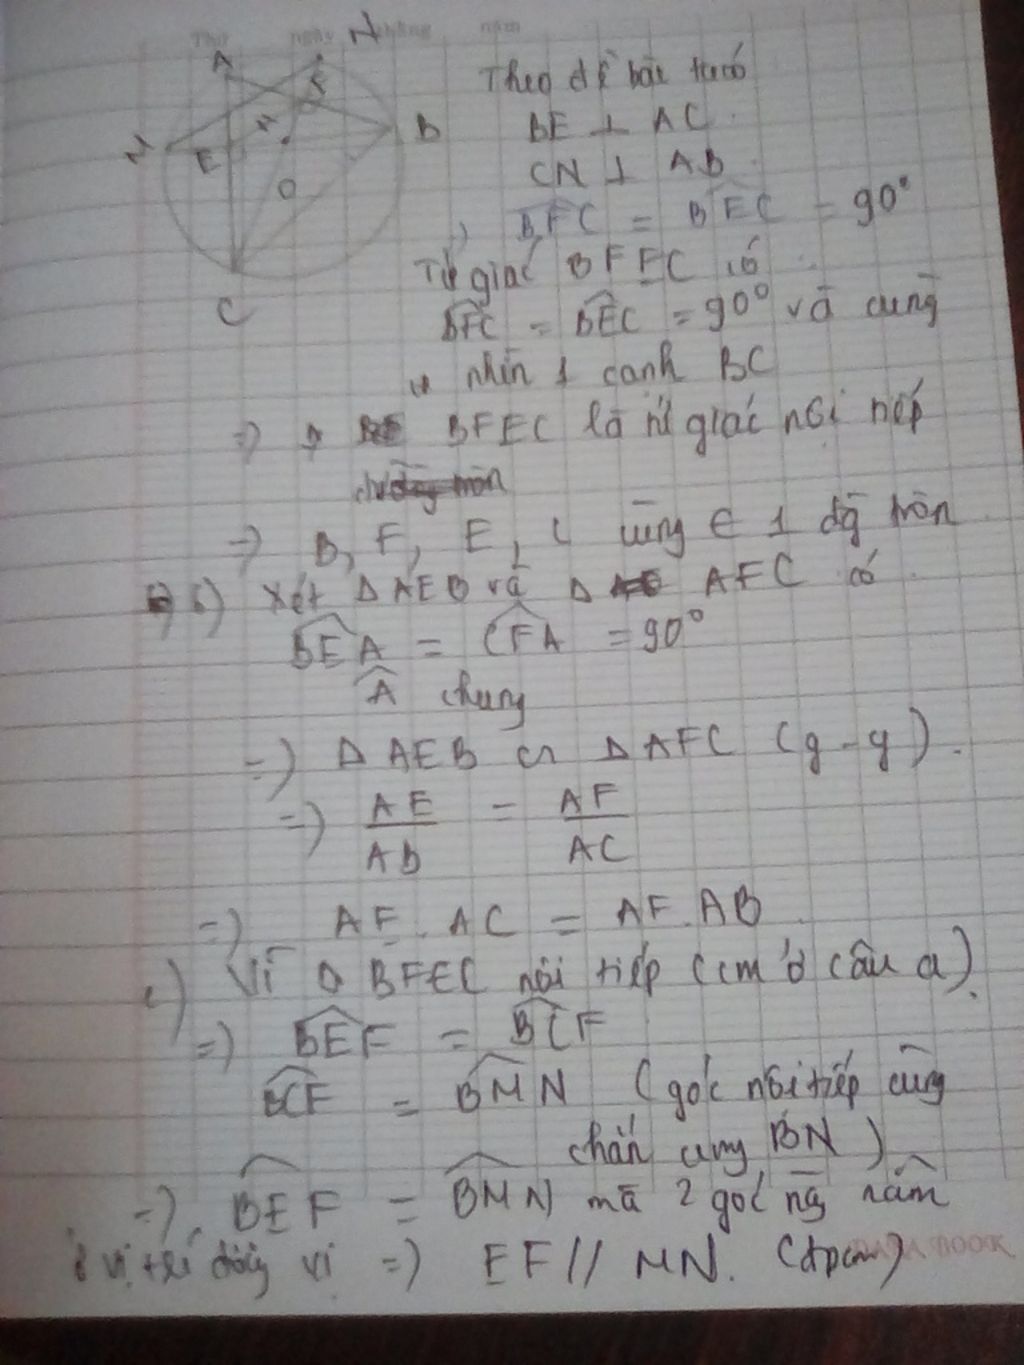 Thứ ngày tháng năm
A N
F
M E H B
O
C
Theo đề bài ta có
BE ⊥ AC.
CN ⊥ AB.
=> BFC = BEC = 90°
Tứ giác BFEC có
BFC = BEC = 90° và cùng
nhìn 1 cạnh BC
=> BFEC là tứ giác nội tiếp
=> B, F, E, C cùng ∈ 1 đg tròn
b) Xét Δ AEB và Δ AFC có
BEA = CFA = 90°
A chung
=> Δ AEB ∽ Δ AFC (g-g).
=> AE/AB = AF/AC
=> AE . AC = AF . AB
c) Vì BFEC nội tiếp (cm ở câu a).
=> BEF = BCF
BCF = BMN (góc nội tiếp cùng
chắn cung BN)
=> BEF = BMN mà 2 góc này nằm
ở vị trí đồng vị => EF // MN. (đpcm)